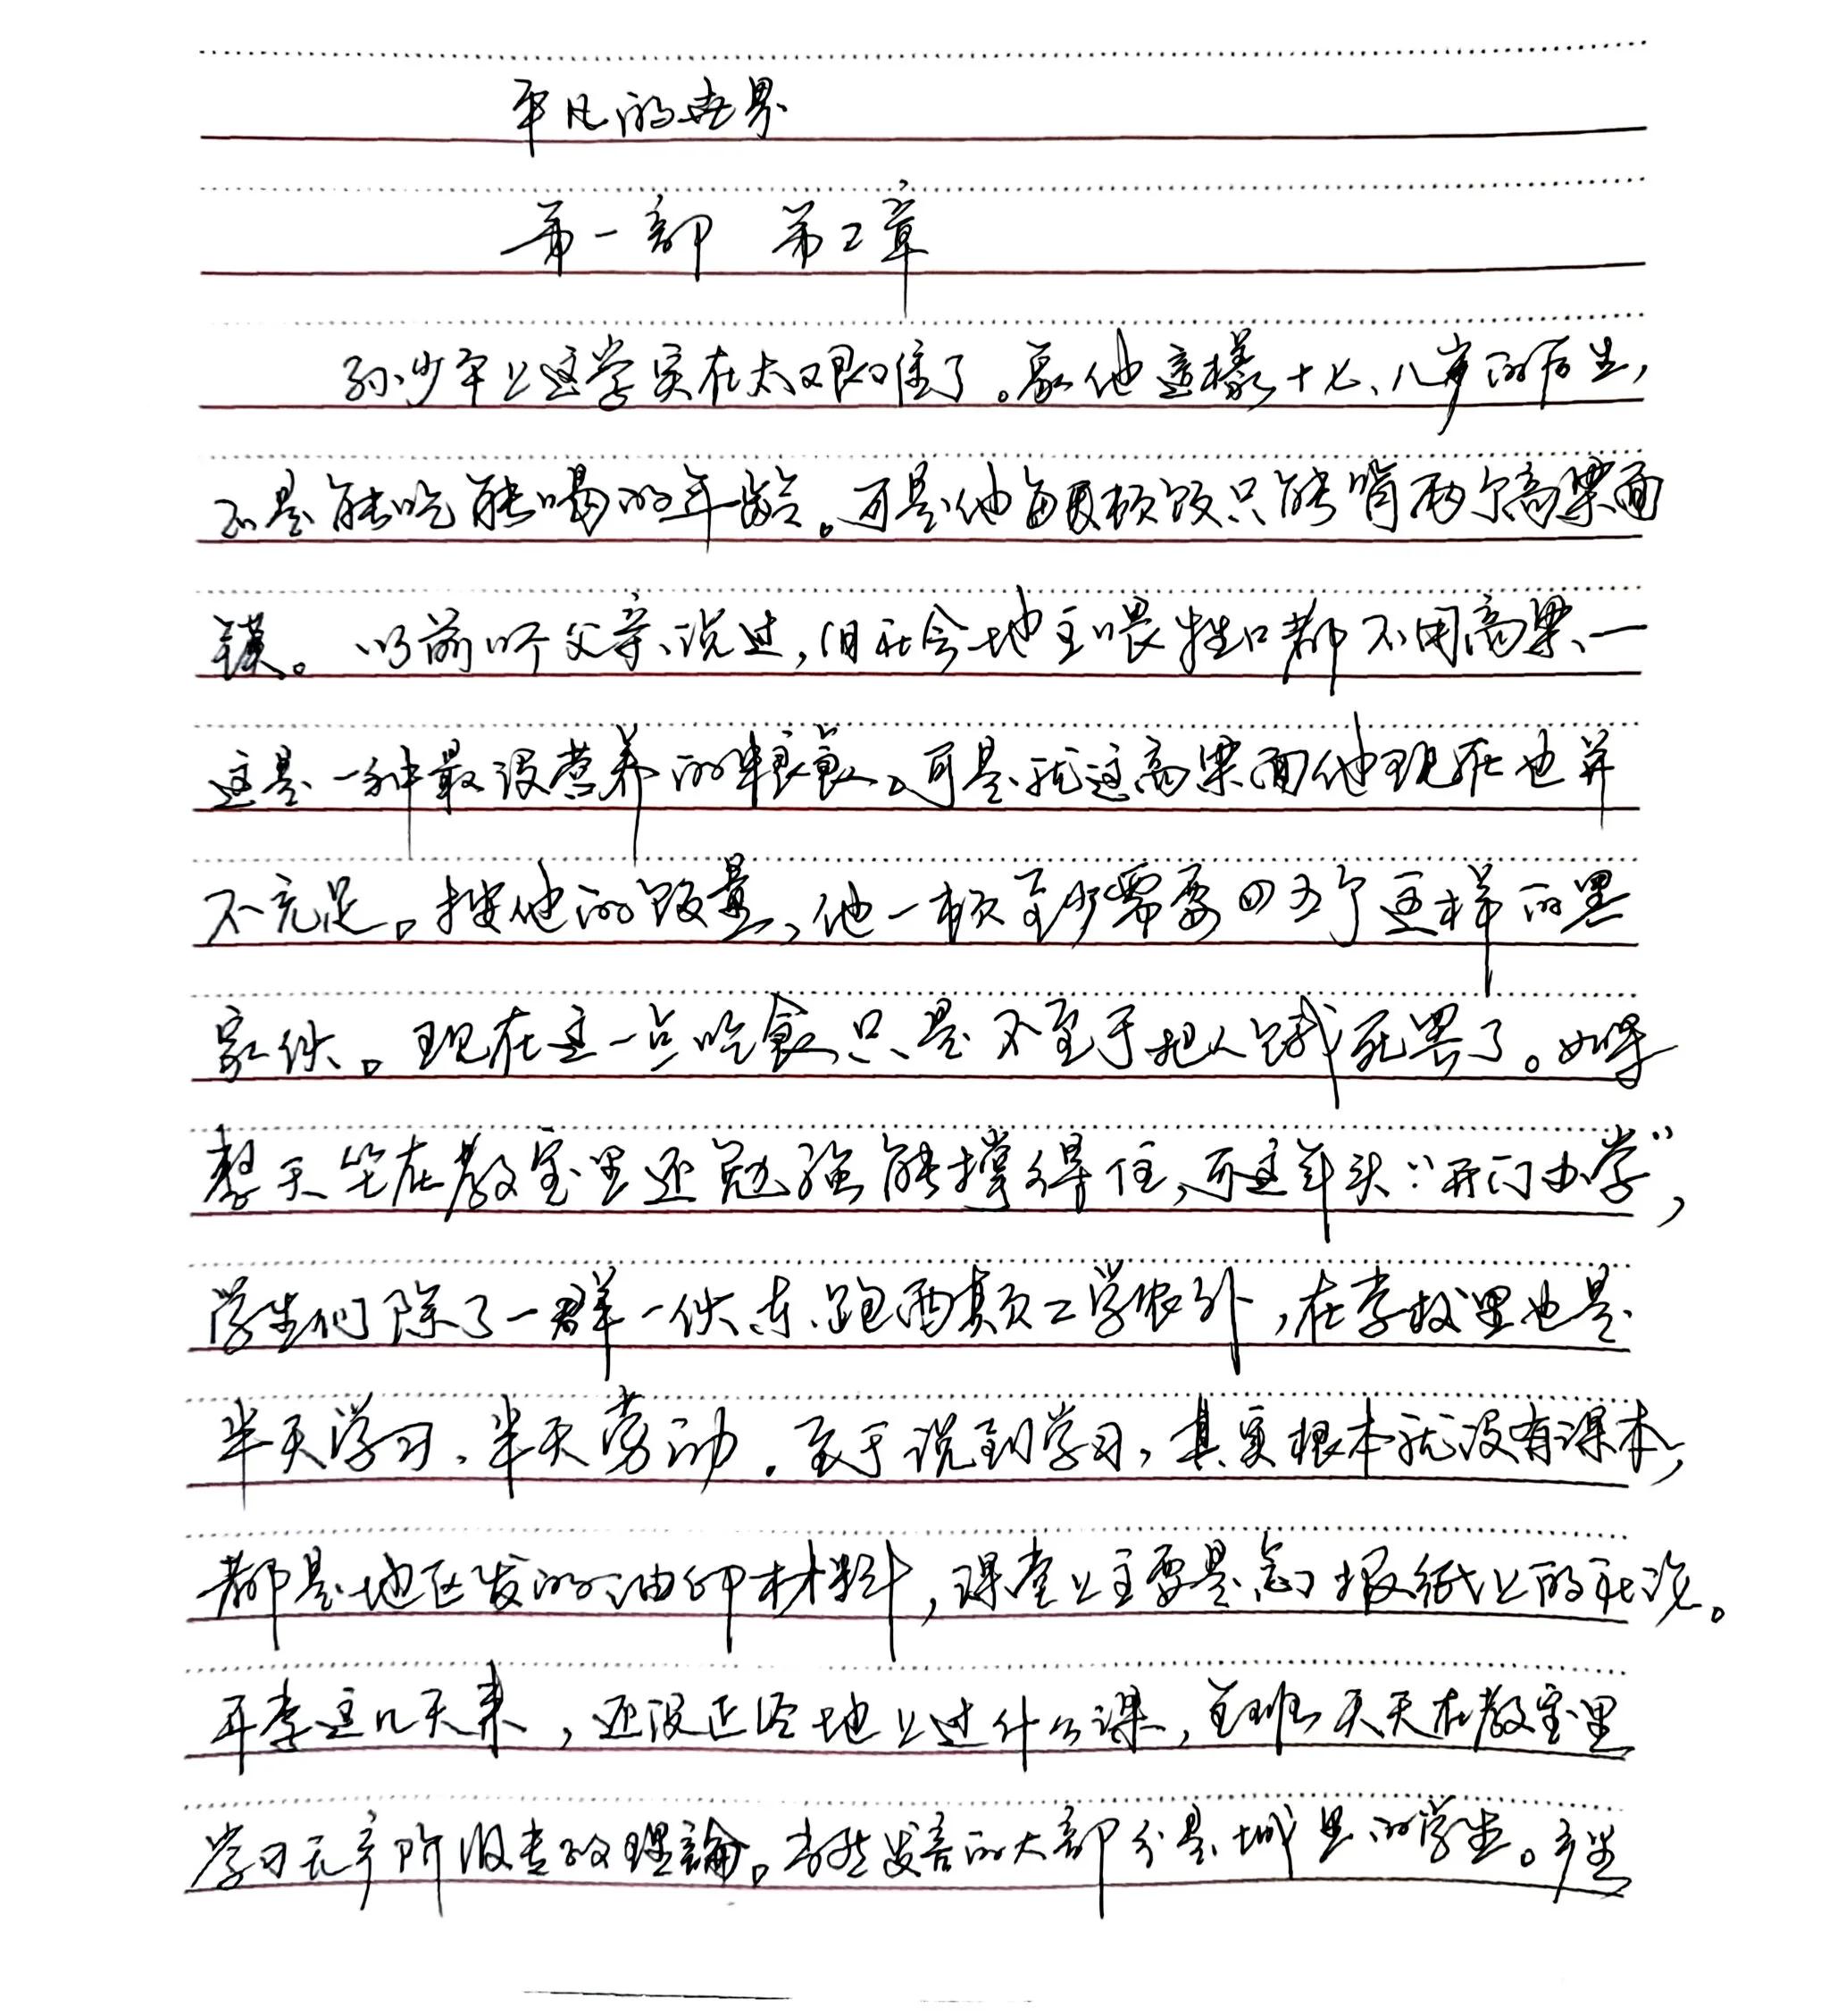 平凡的世界
第一部 第二章
孙少平上这学实在太艰难了。象他這樣十七、八岁的后生，
正是能吃能喝的年龄。可是他每顿饭只能啃两个高粱面
馍。以前听父亲说过，旧社会地主喂牲口都不用高粱—
这是一种最没营养的粮食。可是就这高粱面他现在也并
不充足。按他的饭量，他一顿至少需要四五个这样的黑
家伙。现在这一点吃食只是不至于把人饿死罢了。如果
整天坐在教室里还勉强能撑得住，可这年头“开门办学”，
学生们除了一群一伙东跑西颠工学农外，在学校里也是
半天学习，半天劳动。至于说到学习，其实根本就没有课本，
都是地区发的油印材料，课堂上主要是念报纸上的社论。
开学这几天来，还没正经地上过什么课，全班天天在教室里
学习无产阶级专政理論。当然发言的大部分是城里的学生。